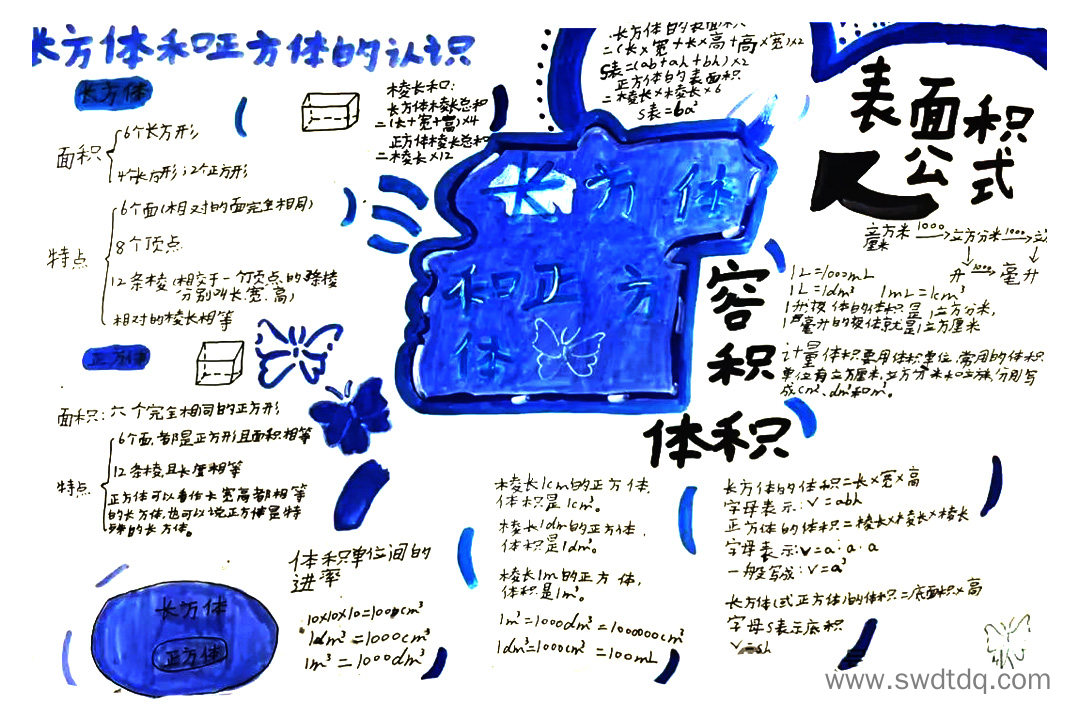 长方体和正方体的认识
长方体
面积
6个长方形
4个长方形;2个正方形
特点
6个面(相对的面完全相同)
8个顶点
12条棱(相交于一个顶点的3条棱
分别叫长、宽、高)
相对的棱长相等
正方体
面积:六个完全相同的正方形
特点
6个面,都是正方形且面积相等
12条棱,且长度相等
正方体可以看作长宽高都相等
的长方体,也可以说正方体是特
殊的长方体。
长方体
正方体
棱长和:
长方体棱长总和
=(长+宽+高)×4
正方体棱长总和
=棱长×12
长方体的表面积
=(长×宽+长×高+高×宽)×2
S表=(ab+ah+bh)×2
正方体的表面积
=棱长×棱长×6
S表=6a²
长方体
和正方
体
表面积
公式
立方米 1000 立方分米 1000 立
厘米
升 1000 毫升
容积
1L=1000mL
1L=1dm³ 1mL=1cm³
1升液体的体积是1立方分米,
1毫升的液体就是1立方厘米
计量体积要用体积单位,常用的体积
单位有立方厘米,立方分米和立方米,分别写
成cm³、dm³和m³。
体积
体积单位间的
进率
10×10×10=1000cm³
1dm³=1000cm³
1m³=1000dm³
棱长1cm的正方体,
体积是1cm³。
棱长1dm的正方体,
体积是1dm³。
棱长1m的正方体,
体积是1m³。
1m³=1000dm³=1000000cm³
1dm³=1000cm³=100mL
长方体的体积=长×宽×高
字母表示:V=abh
正方体的体积=棱长×棱长×棱长
字母表示:V=a·a·a
一般写成:V=a³
长方体(或正方体)的体积=底面积×高
字母S表示底积
V=sh
www.swdtdq.com